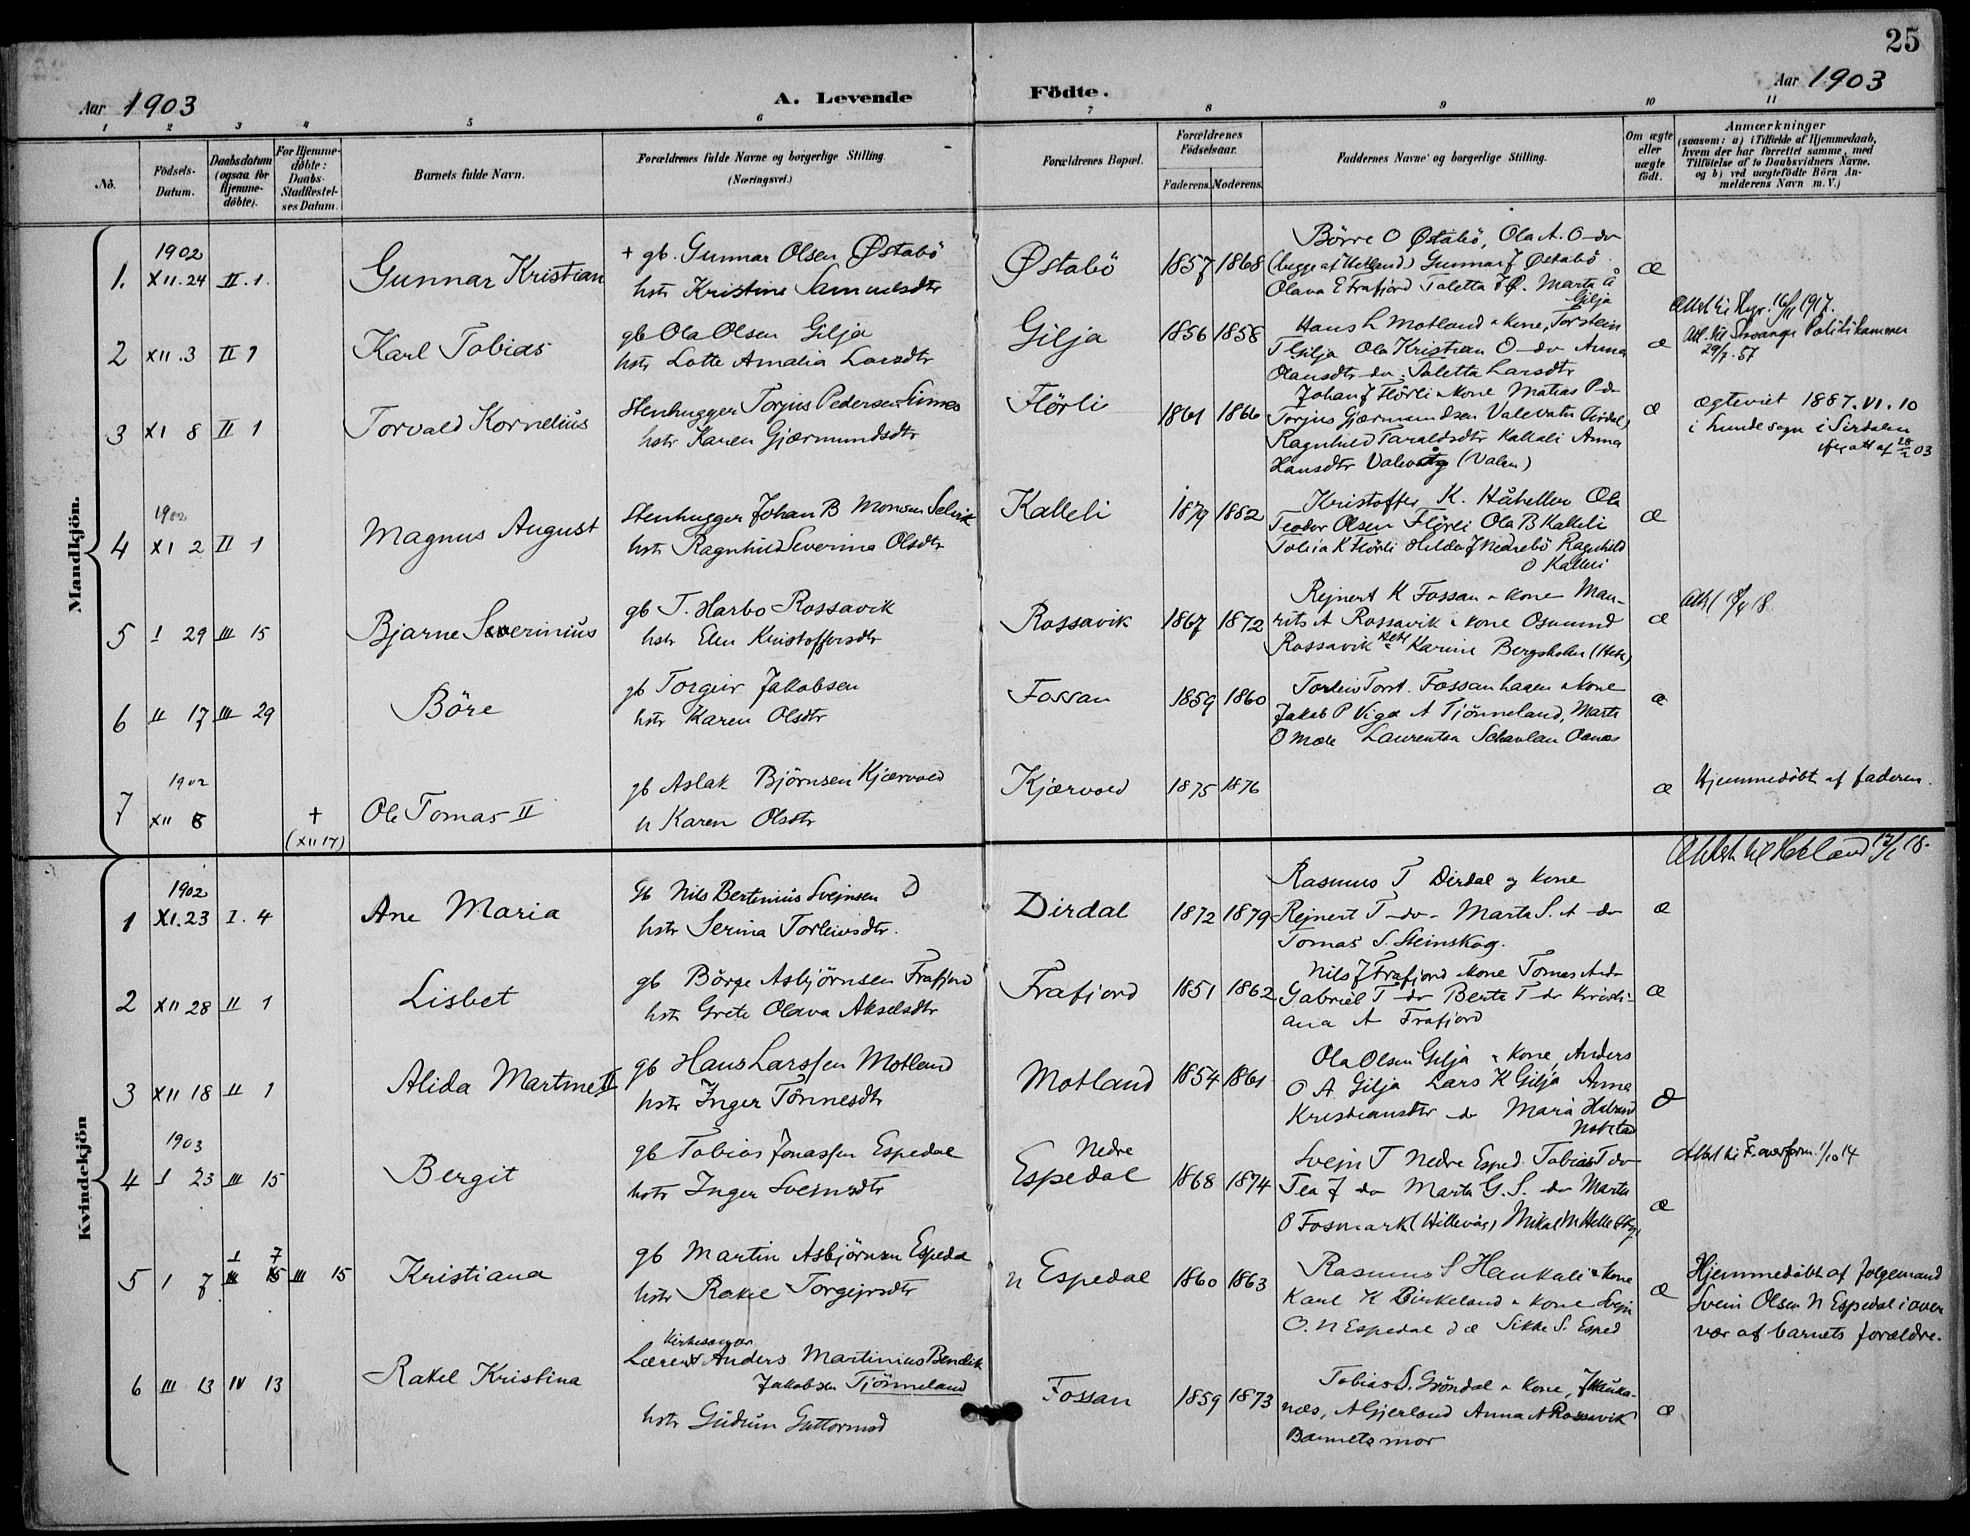 25
Aar 1903
A. Levende Födte.
Aar 1903
1 2 3 4 5 6 7 8 9 10 11
No.
Födsels-Datum.
Daabsdatum (ogsaa for Hjemme-döbte).
For Hjemme-döbte: Daabs-Stadfæstel-ses Datum.
Barnets fulde Navn.
Forældrenes fulde Navne og borgerlige Stilling
(Næringsvei.)
Forældrenes Bopæl.
Forældrenes Födselsaar.
Faderens. Moderens.
Faddernes Navne og borgerlige Stilling.
Om ægte eller uægte födt.
Anmærkninger
(saasom: a) i Tilfælde af Hjemmedaab,
hvem der har forrettet samme, med
Tilföielse af to Daabsvidners Navne.
og b) ved uægtefödte Börn An-
melderens Navn m. V.)
Mandkjön.
1902
1. XII.24 II.1. Gunnar Kristian
+ gb. Gunnar Olsen Østabö
hstr Kristine Samuelsdtr
Østabö 1857 1868
Börre O Østabö, Ola A. O-do
Gunnar J Østabö
Olava E Frafjord Taletta J Ø. Marta Å
Gilja
æ
2 XII.3 II 1 Karl Tobias
gb Ola Olsen Gilja
hstr Lotte Amalia Larsdtr
Gilja 1856 1858
Hans L Motland & kone, Torstein
T Gilja Ola Kristian O-do Anna
Olausdtr do. Taletta Larsdtr
æ
Att. til Stavanger Politikammer
29/7.57
3 XI 8 II 1 Torvald Kornelius
Stenhugger Torjus Pedersen
hstr Karen Gjærmundsdtr
Flörli 1861 1866
Johan J Flörli & kone Matias P do
Torjus Gjærmundsen Valevatn
Ragnhild Taraldsdtr Kalleli Anna
Hansdtr (Valen)
æ
ægteviet 1887.VI.10
i Lunde sogn i Sirdalen
1902
4 XI 2 II 1 Magnus August
Stenhugger Johan B Monsen Selvik
hstr Ragnhild Severina Olsdtr
Kalleli 1879 1882
Kristoffer K. Håheller Ola
Teodor Olsen Flörli Ola B Kalleli
Tobia K Flörli Hilda J Nedrebö Ragnhild
O Kalleli
æ
5 I 29 III 15 Bjarne Severinius
gb T. Harbo Rossavik
hstr Elen Kristoffersdtr
Rossavik 1867 1872
Rejnert K Fossan & kone Mau-
rits A Rossavik & kone Osmund
Rossavik Karine Bergsholm
æ
6 II 17 III 29 Böre
gb Torgeir Jakobsen
hstr Karen Olsdtr
Fossan 1859 1860
Torleiv Torst. Fossanhagen & kone
Jakob P Viga A Tjönneland, Marta
O Mæle Laurentsa Oanes
æ
1902
7 XII 8 † (XII 17) Ole Tomas II
gb Aslak Björnsen Kjærvold
h Karen Olsdtr
Kjærvold 1875 1876
æ
Hjemmedöbt af faderen.
Kvindekjön
1902
1 XI.23 I.4 Ane Maria
Gb Nils Bertinius Svejnsen D
hstr Serina Torleivsdtr.
Dirdal 1872 1879
Rasmus T Dirdal og kone
Rejnert T-do- Marta S. A-do
Tomas S. Steinskog.
æ
Attest til Hetland
2 XII 28 II 1 Lisbet
gb Börge Asbjörnsen Frafjord
hstr Grete Olava Akselsdtr
Frafjord 1851 1862
Nils J Frafjord & kone Tomas A do
Gabriel T-do Berta T do Kristi-
ana A Frafjord
æ
3 XII 18 II 1 Alida Martine II
gb Hans Larssen Motland
hstr Inger Tönnesdtr
Motland 1854 1861
Ola Olsen Gilja & kone, Anders
O A. Gilja Lars K Gilja Anna
Kristiansdtr do Maria
æ
1903
4 I 23 III 15 Bergit
gb Tobias Jonassen Espedal
hstr Inger Sveinsdtr
Nedre
Espedal 1868 1874
Svejn T Nedre Esped. Tobias T do
Tea J do Marta G. S. do Marta
O Fosmark (Hillevåg) Mikal M Helle
æ
I 7
5 I 7 III 15 III 15 Kristiana
gb Martin Asbjörnsen Espedal
hstr Rakel Torgejrsdtr
N Espedal 1860 1863
Rasmus S Haukali & kone
Karl K Birkeland & kone Svejn
O. N Espedal Sikke S. Esped
æ
Hjemmedöbt af folgemand
Svein Olsen N Espedal i over
vær af barnets forældre.
Kirkesanger
6 III 13 IV 13 Rakel Kristina
Lærer Anders Martinius Bendik
Jakobsen Tjönneland
hstr Gudrun Guttormsd
Fossan 1859 1873
Tobias S. Gröndal & kone,
A Gjerland Anna A Rossavik
Barnets mor
æ